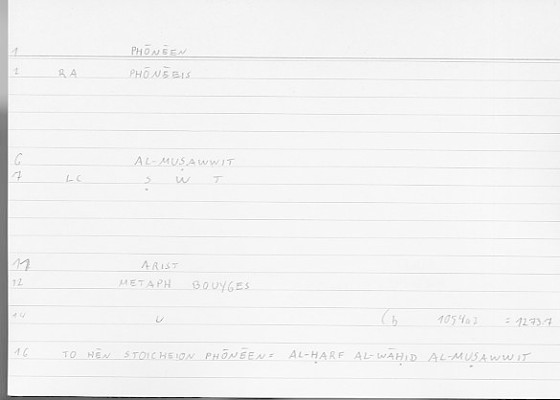 1 PHŌNĒEN
2 RA PHŌNĒEIS
6 AL-MUṢAWWIT
7 LC Ṣ W T
11 ARIST
12 METAPH BOUYGES
14 (h = 1273.7
16 TO HĒN STOICHEION PHŌNĒEN = AL-ḤARF AL-WĀḤID AL-MUṢAWWIT